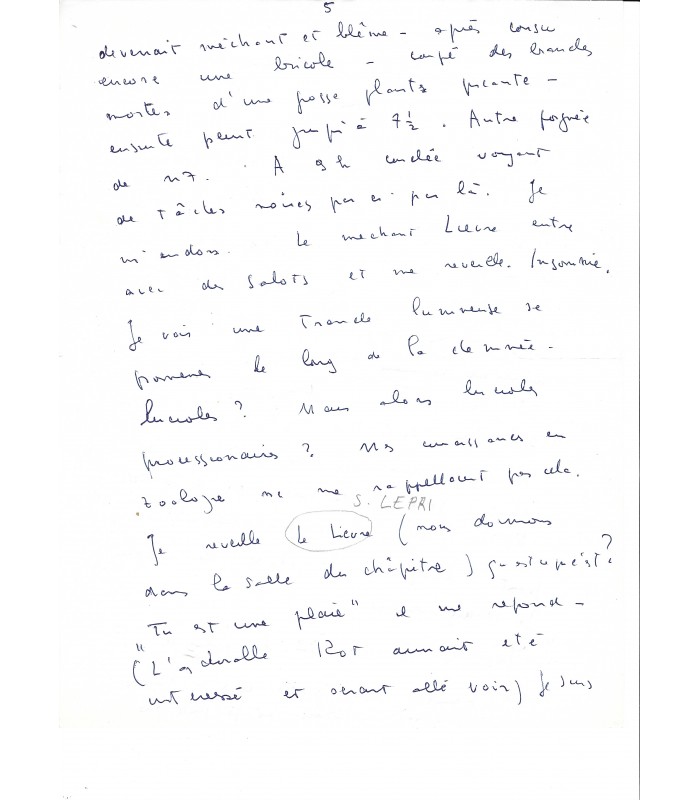 5
devenait méchant et blême - après cousu
encore une bricole - coupé des branches
mortes d'une grosse plante picante -
ensuite peint jusqu'à 7½. Autre poignée
de n7. A 9 h couchée voyant
de tâches noires par ci par là. Je
m'endors. Le mechant Lievre entre
avec des sabots et me reveille. Insomnie.
Je vois une lumineuse se
promener le long de la cheminée -
lucioles? Mais alors lucioles
processionaires? Mes connaissances en
zoologie ne me rappellent pas cela.
S. LEPRI
Je reveille le Lievre (nous dormons
dans la salle du châpitre) qu'estcqu'est?
"Tu est une plaie" il me repond -
(L'adorable Kot aurait eté
interessé et serait allé voir) Je suis